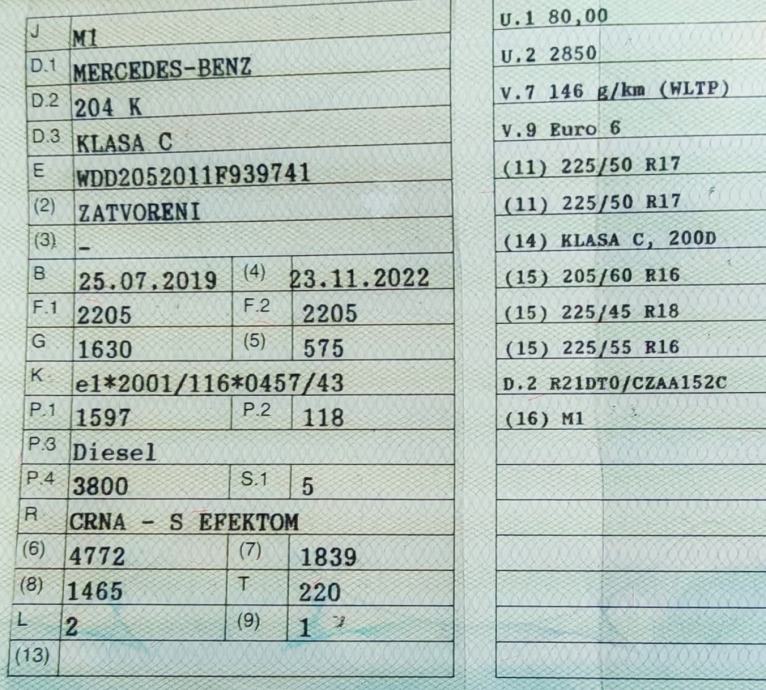 J M1
D.1 MERCEDES-BENZ
D.2 204 K
D.3 KLASA C
E WDD2052011F939741
(2) ZATVORENI
(3) –
B 25.07.2019 (4) 23.11.2022
F.1 2205 F.2 2205
G 1630 (5) 575
K e1*2001/116*0457/43
P.1 1597 P.2 118
P.3 Diesel
P.4 3800 S.1 5
R CRNA - S EFEKTOM
(6) 4772 (7) 1839
(8) 1465 T 220
L 2 (9) 1
(13)
U.1 80,00
U.2 2850
V.7 146 g/km (WLTP)
V.9 Euro 6
(11) 225/50 R17
(11) 225/50 R17
(14) KLASA C, 200D
(15) 205/60 R16
(15) 225/45 R18
(15) 225/55 R16
D.2 R21DT0/CZAA152C
(16) M1